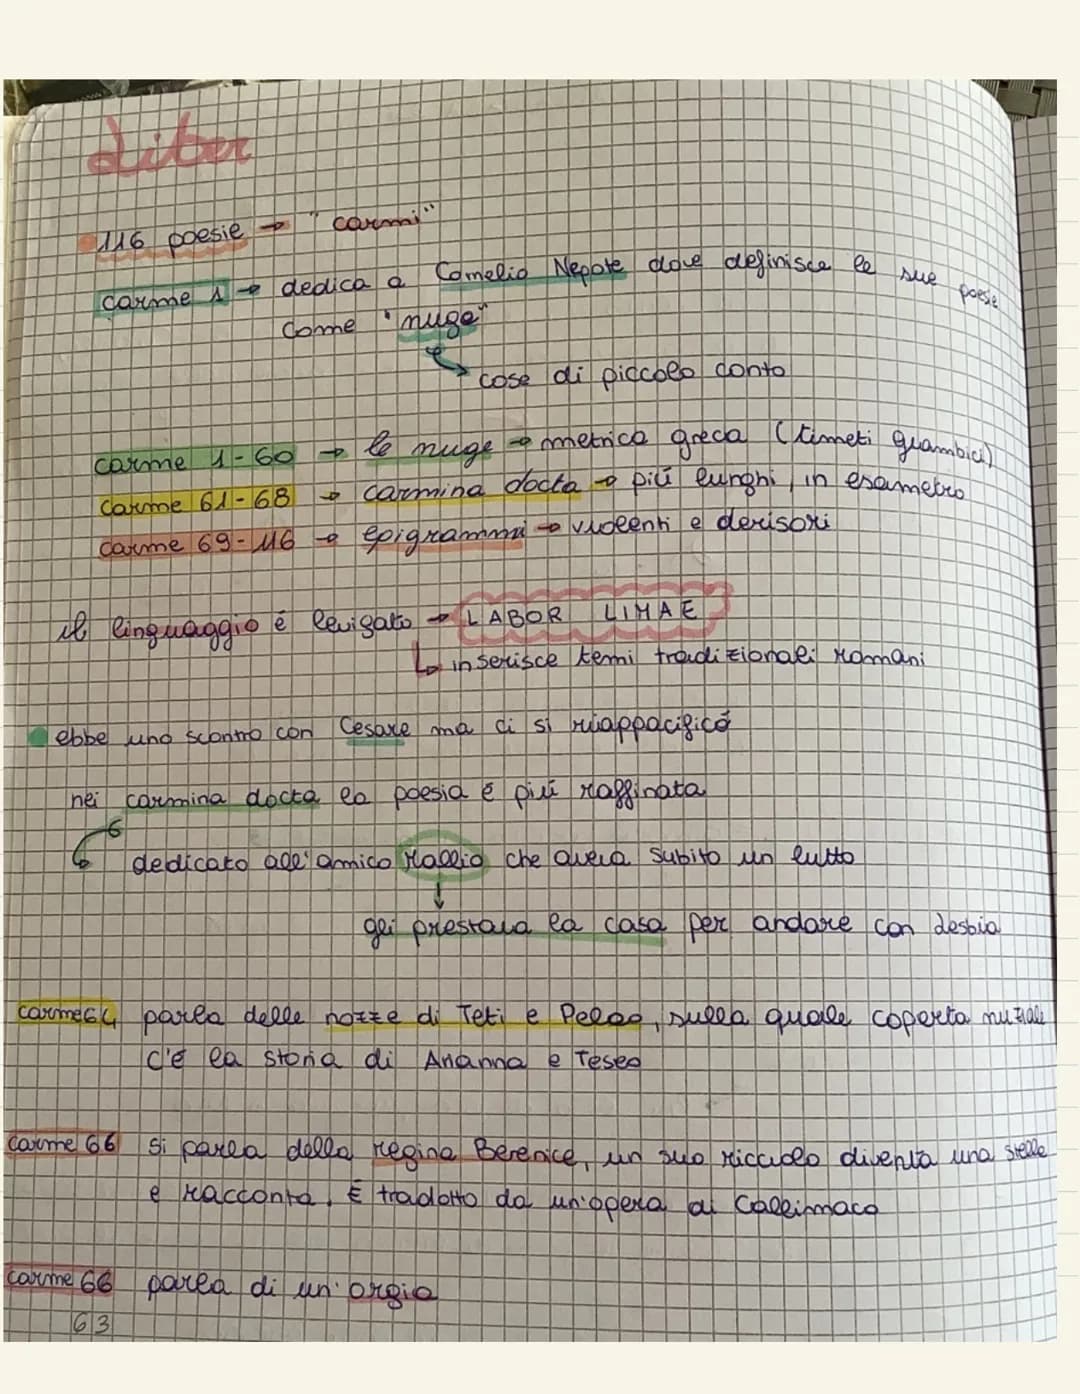 Liber
116 poesie → "carmi"
carme 1 → dedica a Cornelio Nepote dove definisce le sue poesie
come "nuge"
↳ cose di piccolo conto
carme 1-60 → le nuge → metrica greca (timeti guambici)
carme 61-68 → carmina docta → più lunghi, in esametro
carme 69-116 → epigrammi → violenti e derisori
il linguaggio é levigato → LABOR LIMAE
↳ inserisce temi tradizionali romani
ebbe uno scontro con Cesare ma ci si riappacificó
nei carmina docta la poesia é piú raffinata
dedicato all'amico Mallio che aveva subito un lutto
gli prestava la casa per andare con Lesbia
carme 64 parla delle nozze di Teti e Peleo, sulla quale coperta nuziale
c'é la storia di Arianna e Teseo
carme 66 si parla della regina Berenice, un suo ricciolo diventa una stella
e racconta. É tradotto da un'opera di Callimaco
carme 66 parla di un'orgia
63